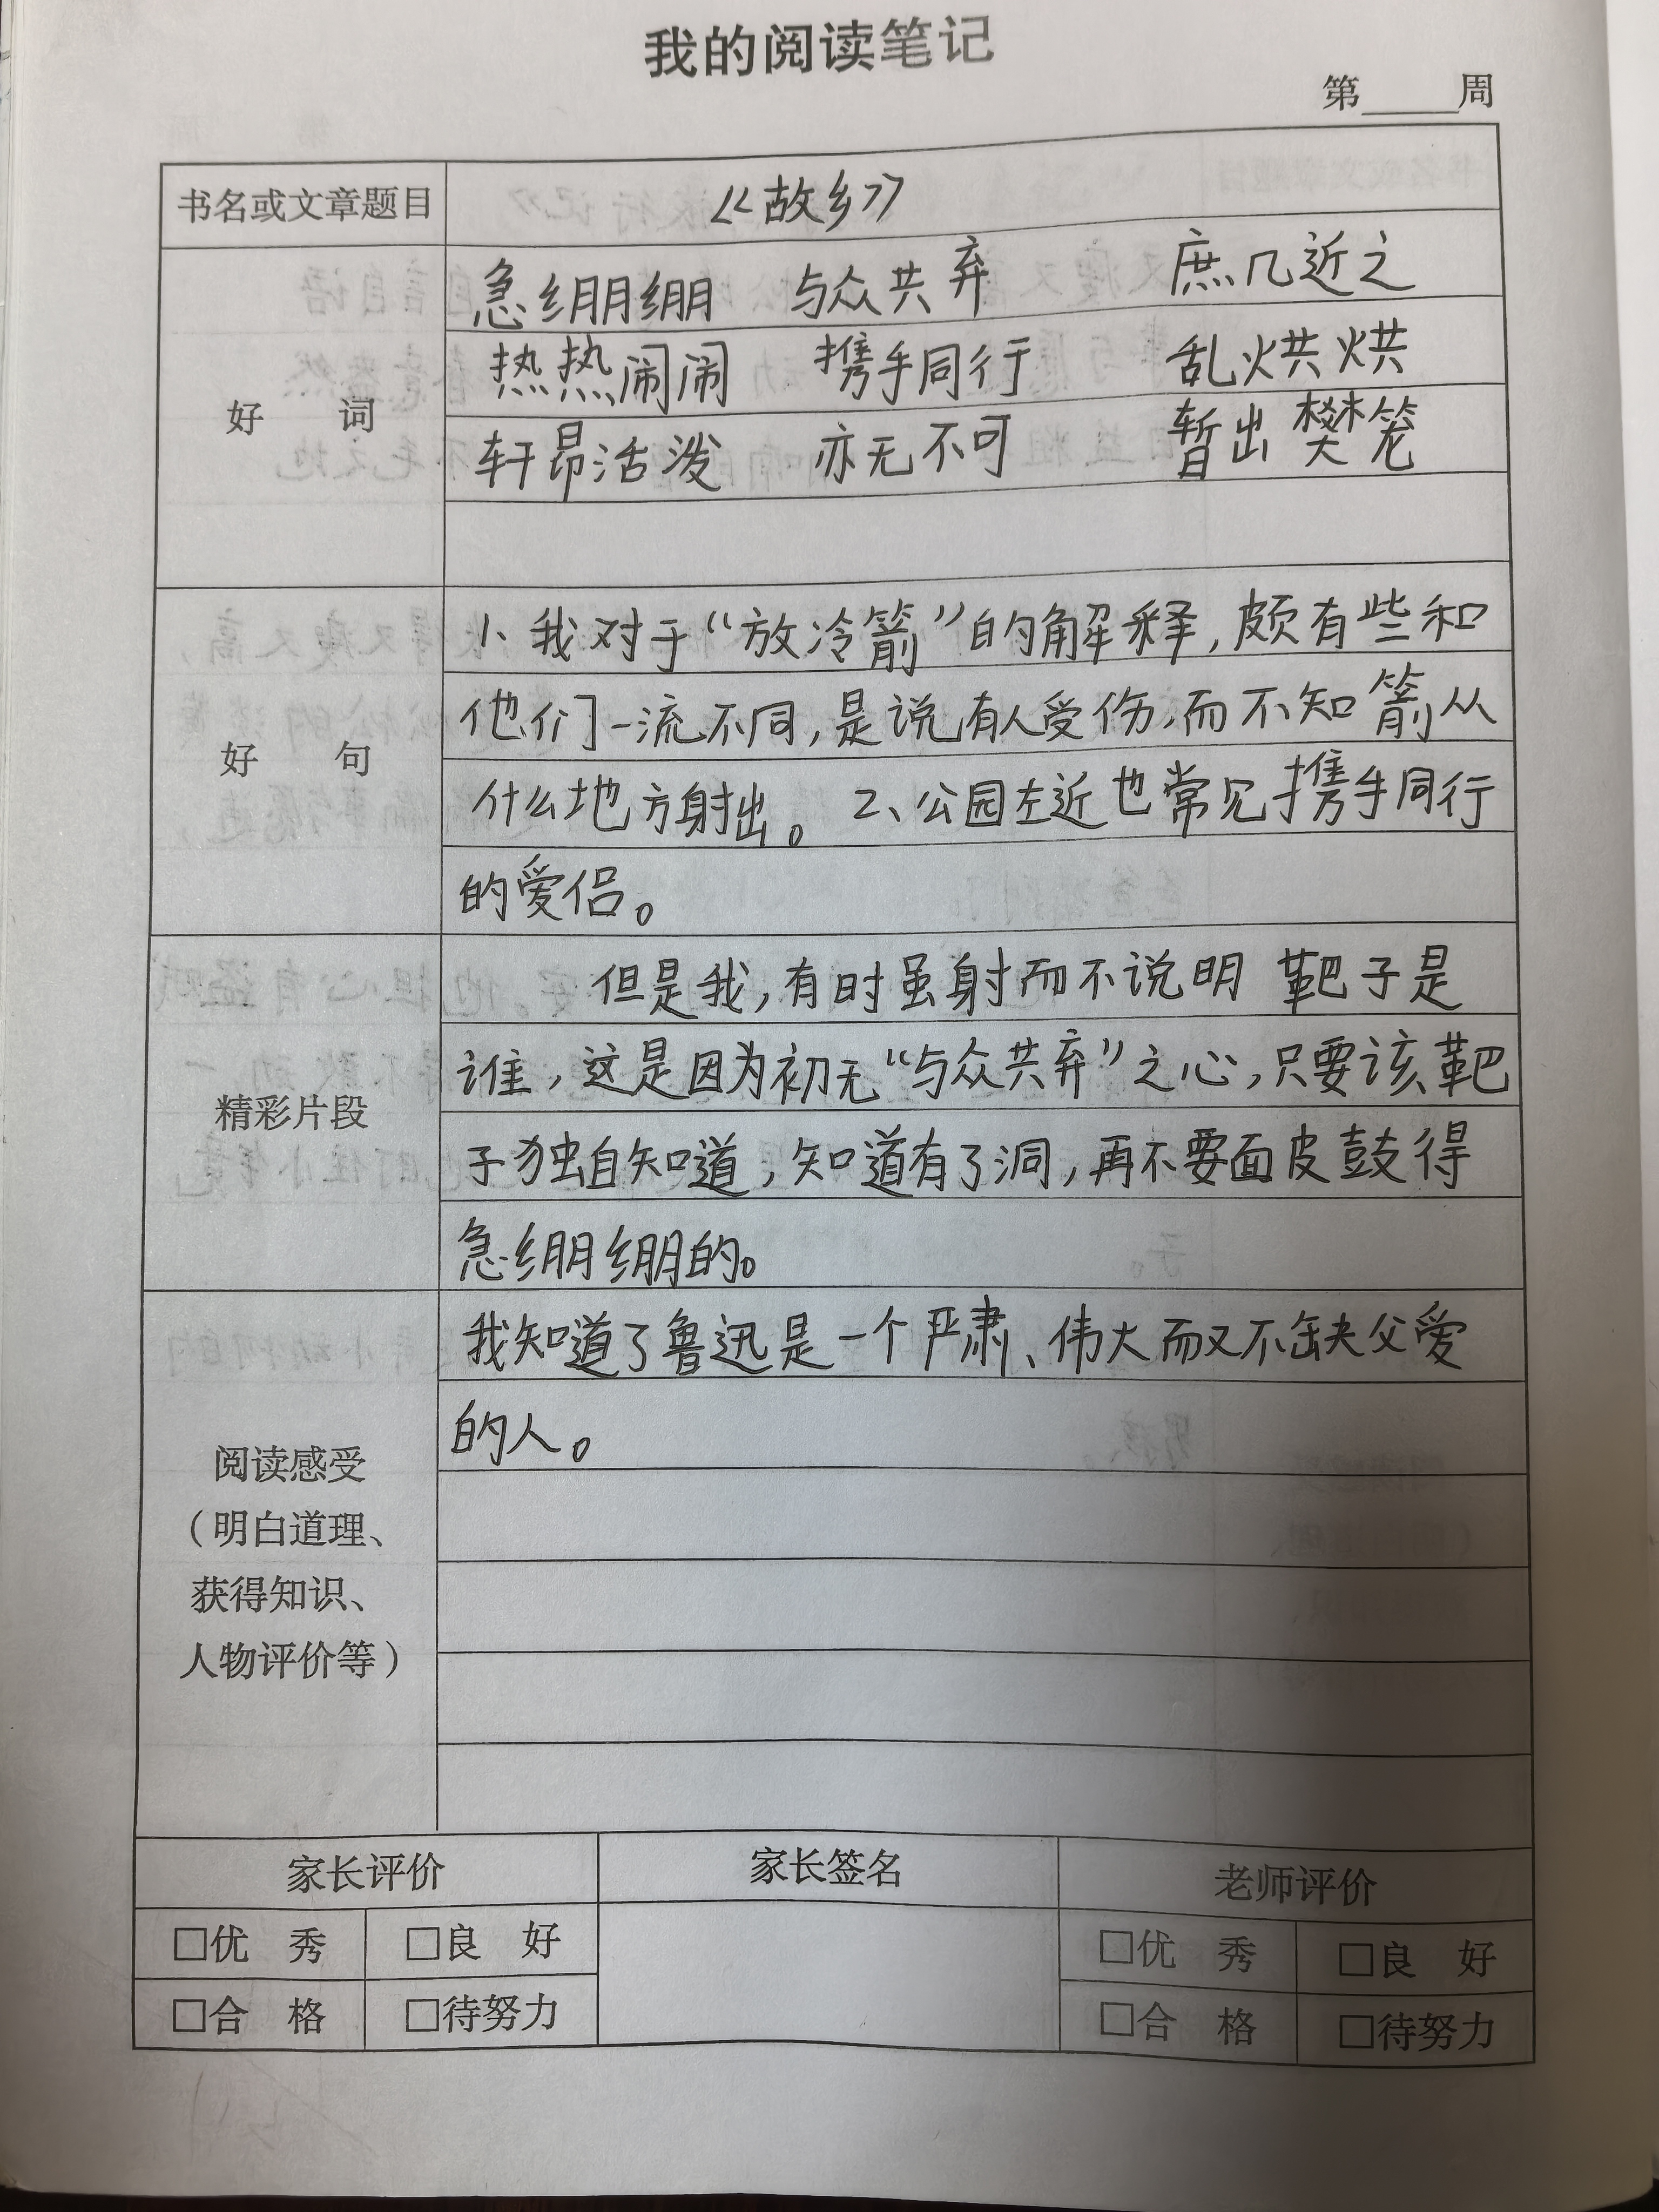 我的阅读笔记
第____周
书名或文章题目 《故乡》
急绷绷 与众共弃 庶几近之
热热闹闹 携手同行 乱烘烘
好 词
轩昂活泼 亦无不可 暂出樊笼
1、我对于“放冷箭”的解释,颇有些和
他们一流不同,是说有人受伤,而不知箭从
好 句
什么地方射出。2、公园左近也常见携手同行
的爱侣。
但是我,有时虽射而不说明靶子是
谁,这是因为初无“与众共弃”之心,只要该靶
精彩片段
子独自知道,知道有了洞,再不要面皮鼓得
急绷绷的。
我知道了鲁迅是一个严肃、伟大而又不缺父爱
的人。
阅读感受
(明白道理、
获得知识、
人物评价等)
家长评价 家长签名 老师评价
□优 秀 □良 好 □优 秀 □良 好
□合 格 □待努力 □合 格 □待努力